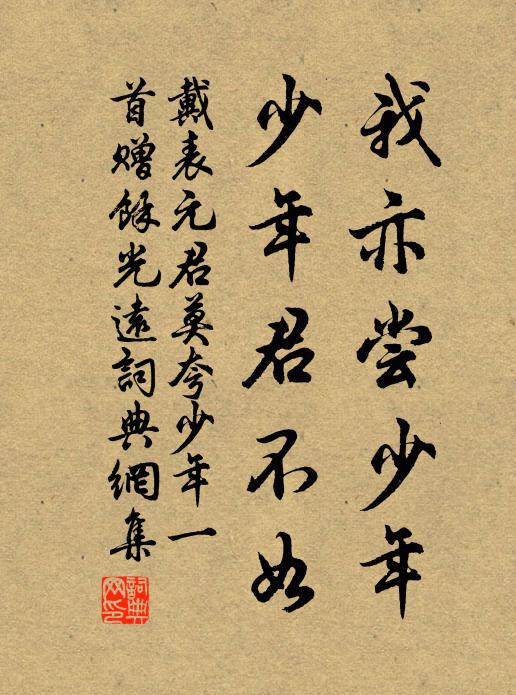 我亦尝少年
少年君不如
戴表元君莫夸少年一
首赠馀光遠詞典網集
詞典
网印